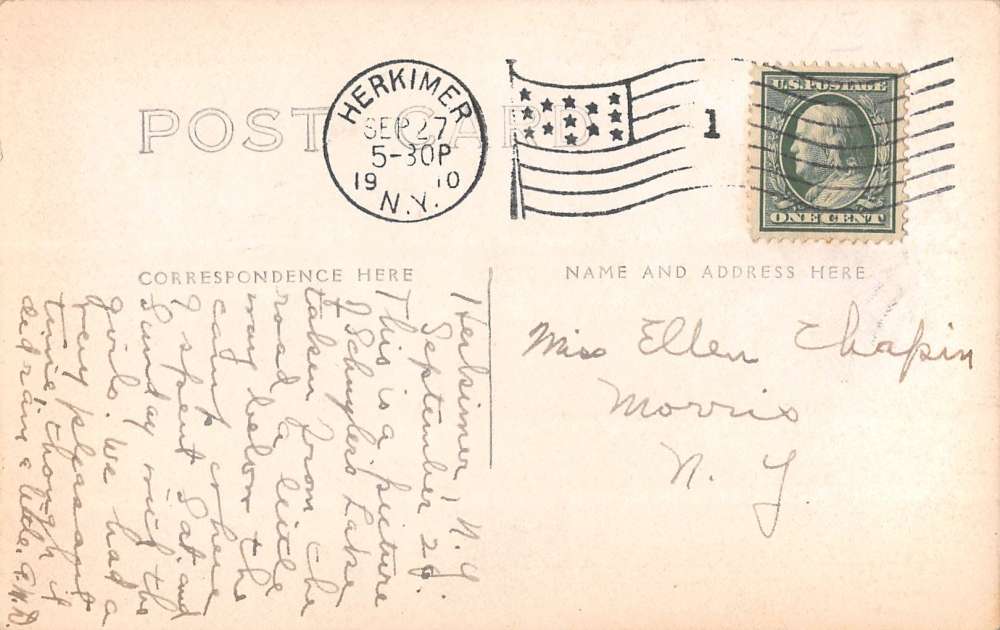 POST CARD
HERKIMER
SEP 27
5-30P
19 10
N.Y.
1
U.S. POSTAGE
ONE CENT
CORRESPONDENCE HERE
NAME AND ADDRESS HERE
Herkimer, N.Y.
September 26.
This is a picture
of Schuyler's Lake
taken from the
road a little
way below the
camp where
I spent Sat. and
Sunday with the
girls. We had a
very pleasant
time, though it
did rain a little. A.M.D.
Miss Ellen Chapin
Morris
N. Y.